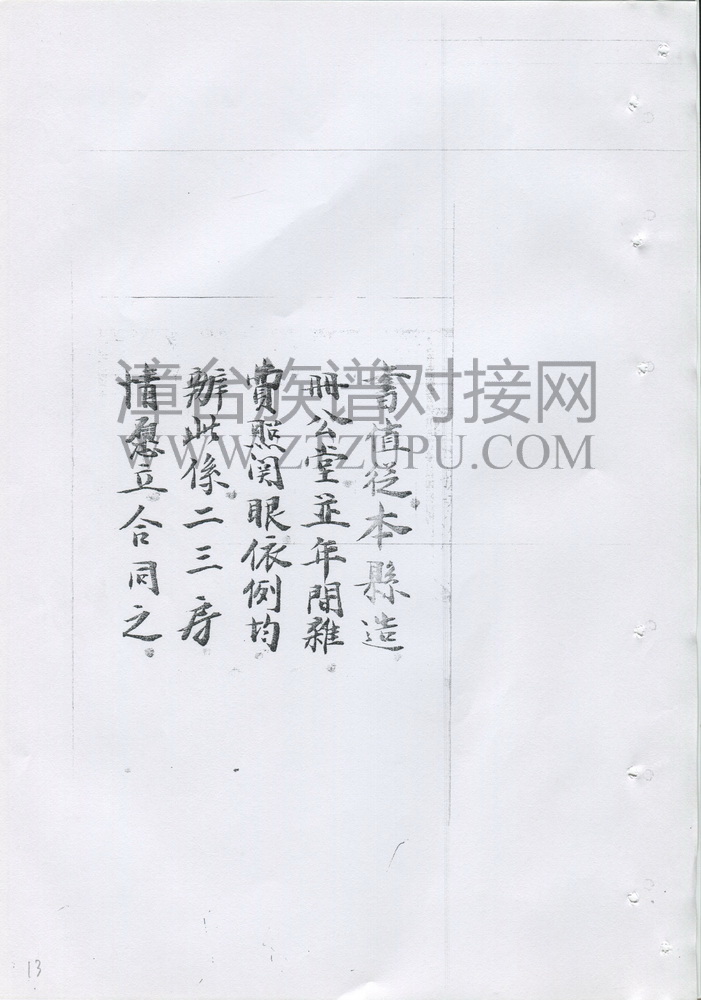 書值從本縣造
冊公堂並年間雜
費照関眼依例均
辦此係二三房
情愿立合同之
漳台族谱对接网
WWW.ZTZUPU.COM
13